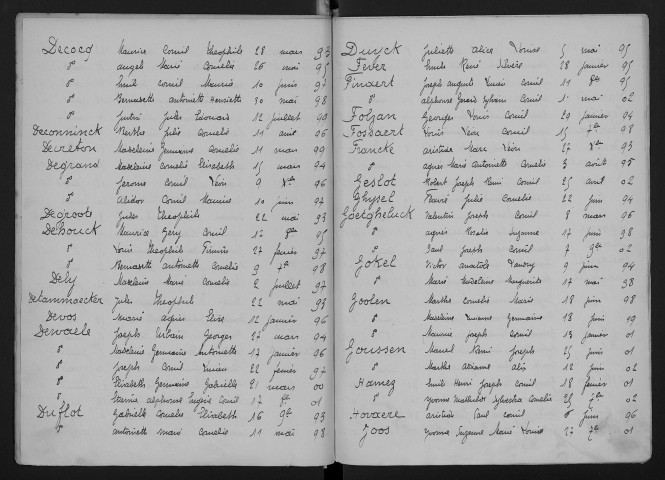 Decocq Maurice Cornil Théophile 28 mars 93
d° Angèl Marie Cornélie 26 mai 95
d° Emil Cornil Maurice 10 juin 97
d° Bernadette Antoinette Henriette 30 mai 98
d° Julien Jules Léonard 12 juillet 90
Deconninck Berthe Julie Cornélie 11 août 96
Decreton Madeleine Germaine Cornélie 11 mars 99
Degrand Madeleine Cornélie Elisabeth 15 mars 94
d° Jérome Cornil Léon 9 Xbre 96
d° Alidor Cornil Maurice 10 juin 97
Degroote Jules Théophile 22 mai 93
Dehouck Maurice Géry Cornil 12 95
d° Louis Théophile Firmin 27 février 97
d° Bernadette Antoinette Cornélie 9 7bre 98
Dely Madeleine Marie Cornélie 2 juillet 97
Delanmaecker Jules Théophile 22 mai 93
Devos Marie Elise 12 janvier 96
Dewaele Joseph Urbain Georges 27 mars 94
d° Madeleine Germaine Antoinette 17 janvier 96
d° Joseph Cornil Lucien 22 février 97
d° Elisabeth Germaine Gabrielle 21 mars 00
d° Alphonse Eugène Cornil 17 01
Duflot Gabrielle Cornélie Elisabeth 16 9bre 93
d° Antoinette Marie Cornélie 11 mai 98
Duyck Juliette Alice Louise 5 mai 95
Fever Emile René 28 janvier 95
Finaert Joseph Auguste Lucien Cornil 11 8bre 95
d° Alphonse Gérard Sylvain Cornil 1 mai 02
Foljan Georges Louis Cornil 29 janvier 94
Fossaert Louis Léon Cornil 15 7bre 98
Francke Aristide Marc Léon 27 Xbre 93
d° Agnès Marie Antoinette Cornélie 3 août 95
Geslot Robert Joseph Remi Cornil 25 avril 02
Ghysel Julie Cornélie 22 juin 94
Goetgheluck Valentin Joseph Cornil 8 mars 96
d° Agnès Rosalie Suzanne 17 juin 98
d° Paul Joseph Cornil 7 9bre 02
Gokel Victor Anatole 9 juin 94
d° Marie Madeleine Marguerite 17 mai 98
Goolen Marthe Cornélie Marie 18 juin 98
d° Madeleine Lucienne Germaine 18 juin 99
d° Maurice Joseph Cornil 13 janvier 01
Goussen Marcel Remi Joseph 25 juin 01
d° Marthe 12 juin 02
Hamez Emile Henri Joseph Cornil 18 février 01
d° Yvonne Mathilde Sylvestra Cornélie 25 7bre 02
Hovaere Aristide Paul Cornil 6 juin 96
Joos Yvonne Suzanne Marie Louise 27 7bre 01